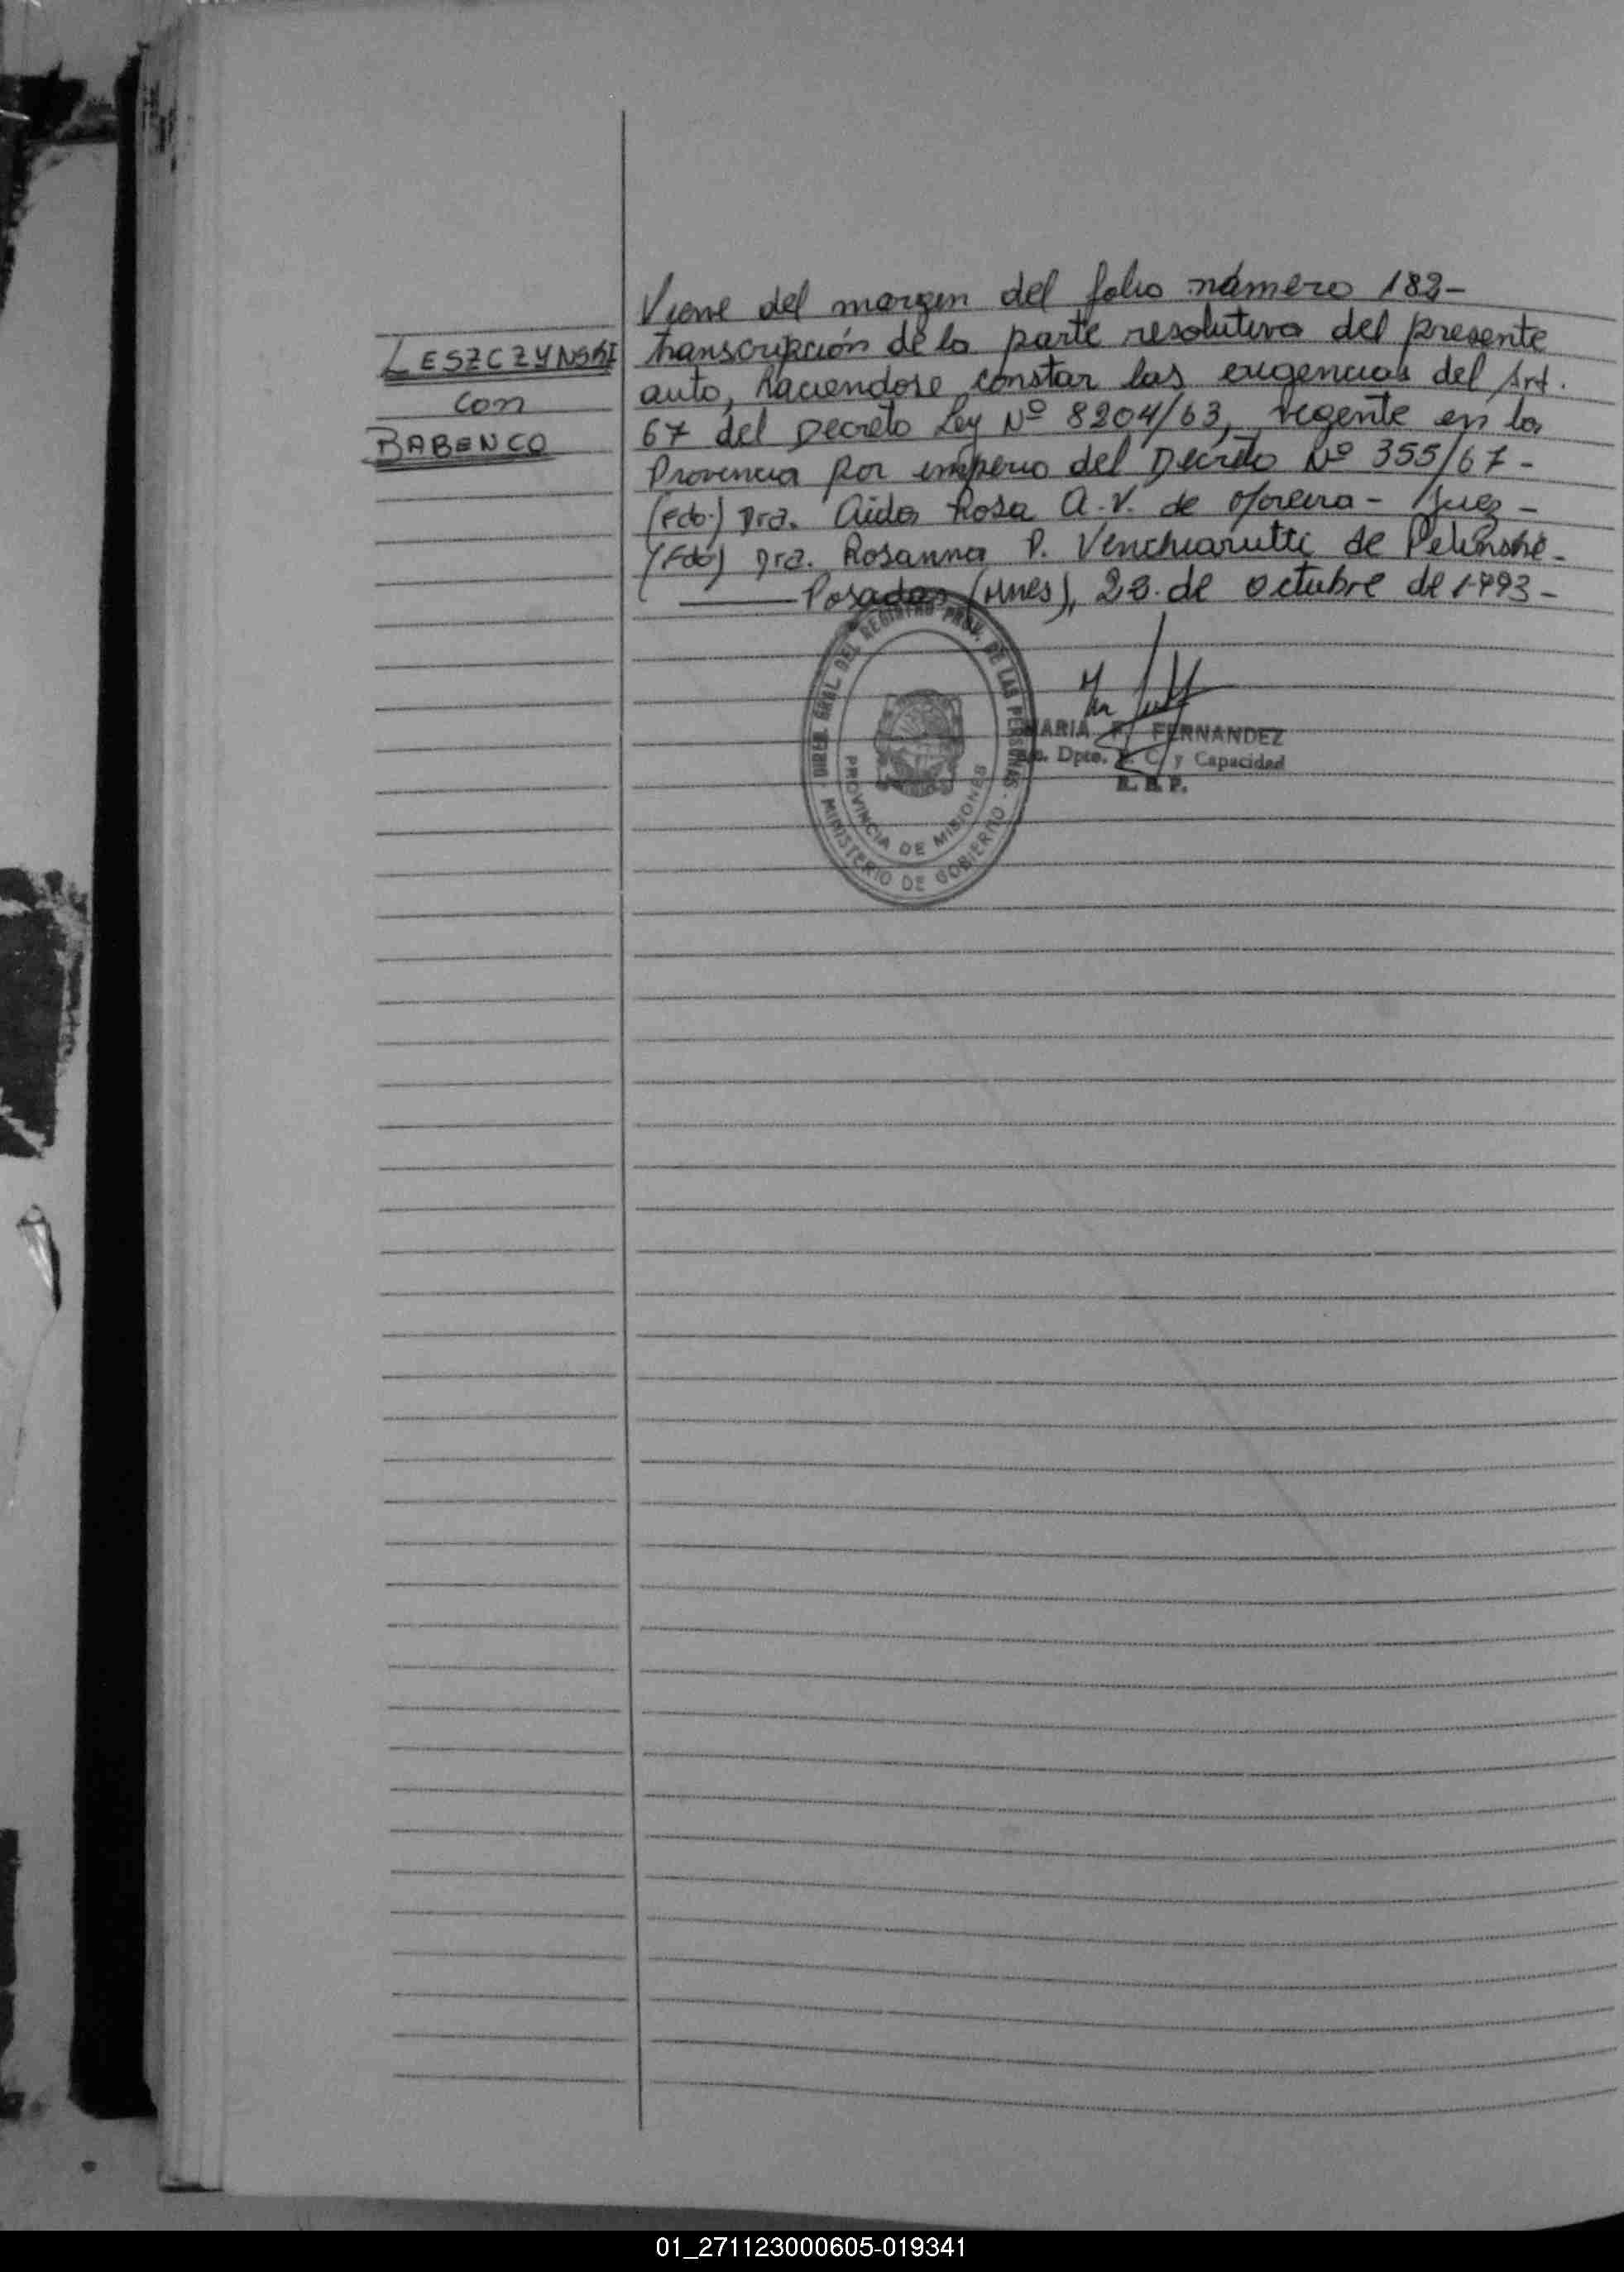 LESZCZYNSKI
con
BABENCO
Viene del margen del folio número 182-
transcripción de la parte resolutiva del presente
auto, haciendose constar las exigencias del Art.
67 del Decreto Ley Nº 8204/63, vigente en la
Provincia por imperio del Decreto Nº 355/67-
(Fdo.) Dra. Aida Rosa A.V. de Moreira - Juez -
(Fdo) Dra. Rosanna P. Venchiarutti de
Posadas (Mnes), de octubre de 1993-
DIREC. GRAL. DEL REGISTRO PROV. DE LAS PERSONAS
MINISTERIO DE GOBIERNO
PROVINCIA DE MISIONES
MARIA FERNANDEZ
Dpto. E. C. y Capacidad
R. P.
01_271123000605-019341